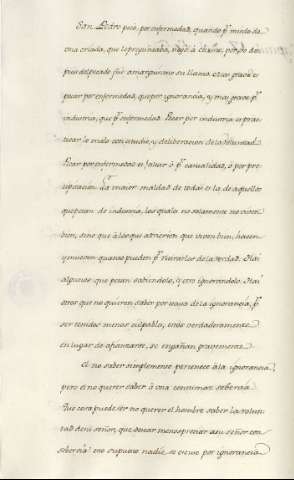 San Pedro pecó por enfermedad, quando pr. miedo de
una criada, que le preguntaba, negó à Christo, por do des
pues del pecado fué amarguísimo su llanto. Mas grave es
pecar por enfermedad, que por ignorancia, y mas grave pr.
industria, que pr. enfermedad. Pecar por industria es prac
ticar lo malo con estudio, y deliberacion de la voluntad.
Pecar por enfermedad es, faltar ó pr. casualidad, ó por pre
cipitación. La maior maldad de todas es la de aquellos
que pecan de industria, los quales no solamente no viven
bien, sino que à los que advierten que viven bien, hacen
y mueven quanto pueden pr. desviarlos de la verdad. Hai
algunos que pecan sabiendolo, y otros ignorandolo. Hai
otros que no quieren saber por causa de la ignorancia, pr.
ser tenidos menos culpables, estos verdaderamente
en lugar de afianzarse, se engañan gravemente.
El no saber simplemente pertenece à la ignorancia,
pero el no querer saber à una contumaz soberbia.
Que cosa puede ser no querer el hombre saber la volun
tad de su señor, que desear menospreciar a su señor con
soberbia? Con supuesto nadie se escuse por ignorancia